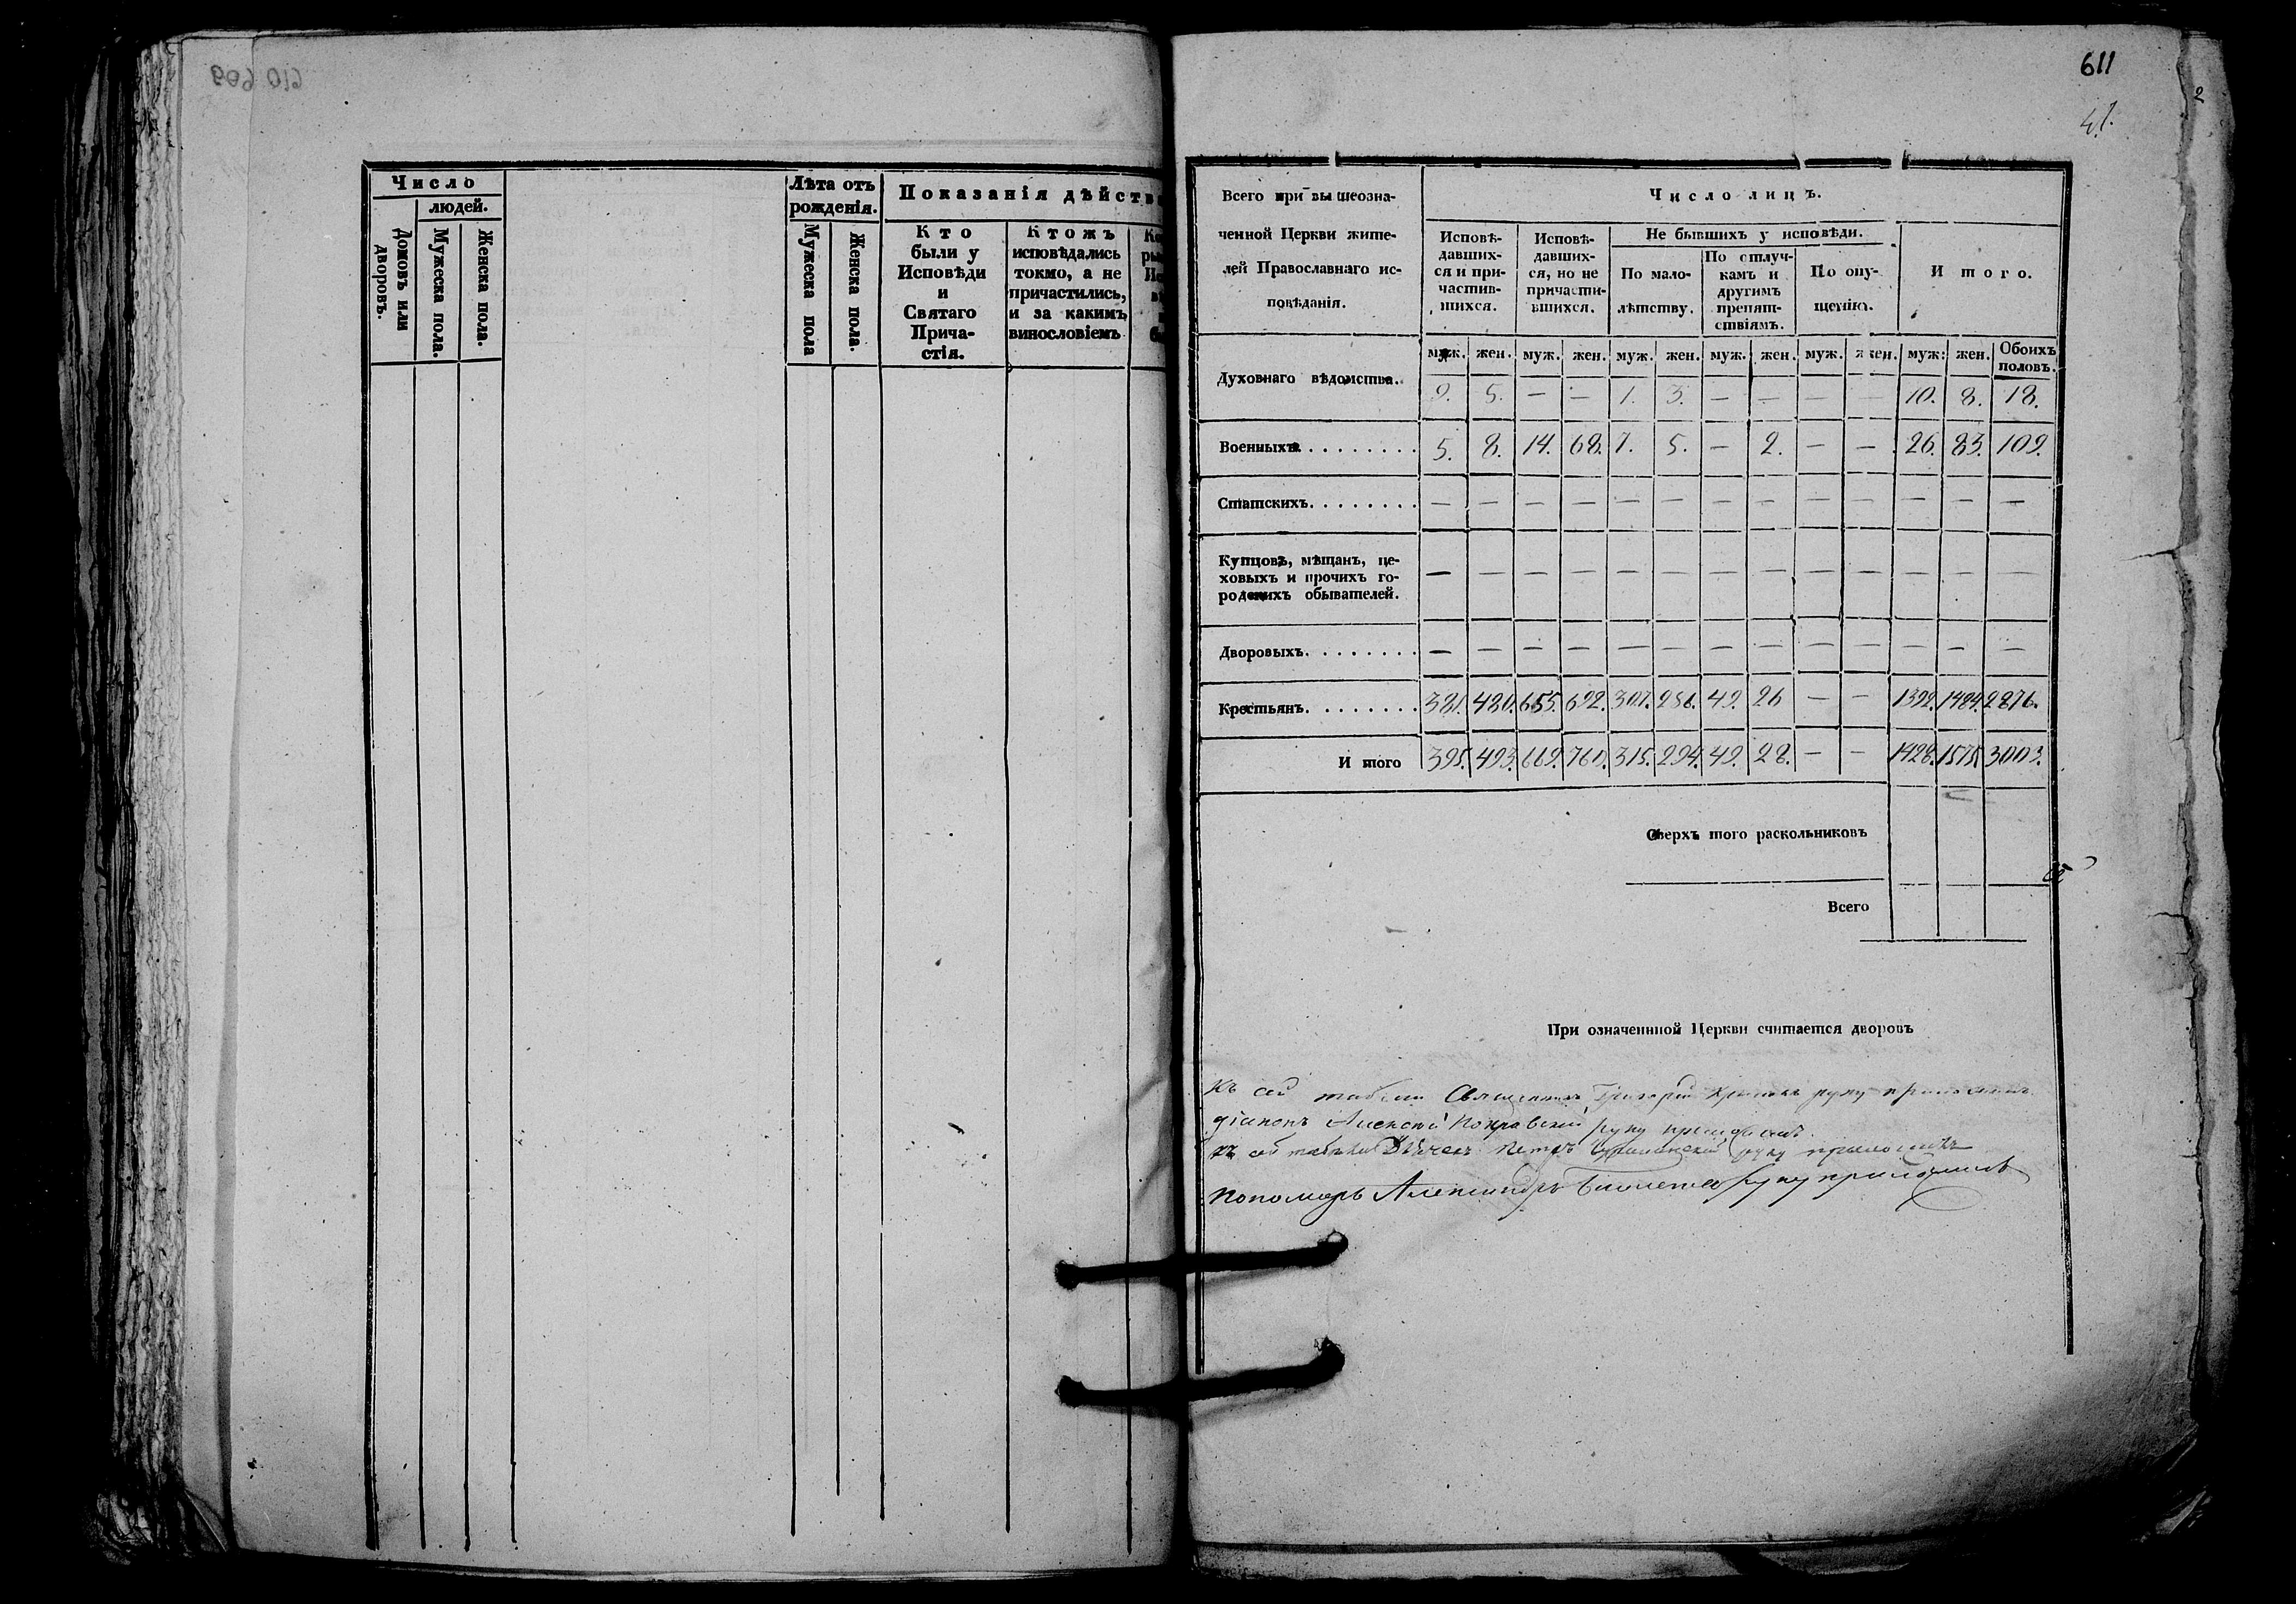 Число
людей.
Домовъ или дворовъ.
Мужеска пола.
Женска пола.
Лѣта отъ
рожденія.
Мужеска пола
Женска пола.
Показанія дѣйств
Кто
были у
Исповѣди
и
Святаго
Прича-
стія.
Ктожъ
исповѣдались
токмо, а не
причастились,
и за какимъ
винословіемъ
611
Всего при вышеозна-
ченной Церкви жите-
лей Православнаго ис-
повѣданія.
Число лицъ.
Исповѣ-
давших-
ся и при-
частив-
шихся.
Исповѣ-
давших-
ся, но не
причасти-
вшихся.
Не бывшихъ у исповѣди.
По мало-
лѣтству.
По отлуч-
камъ и
другимъ
препят-
ствіямъ.
По опу-
щенію.
Итого.
муж. жен. муж. жен. муж. жен. муж. жен. муж. жен. муж: жен. Обоихъ половъ.
Духовнаго вѣдомства. 9. 5. — — 1. 3. — — — — 10. 8. 18.
Военныхъ. . . . . . . . 5. 8. 14. 68. 7. 5. — 2. — — 26. 83. 109.
Статскихъ. . . . . . . . — — — — — — — — — — — — —
Купцовъ, мѣщанъ, це-
ховыхъ и прочихъ го-
родскихъ обывателей. — — — — — — — — — — — — —
Дворовыхъ. . . . . . . . — — — — — — — — — — — — —
Крестьянъ. . . . . . . . 381. 480. 655. 692. 307. 286. 49. 26 — — 1392. 1484. 2876.
И того 395. 493. 669. 760. 315. 294. 49. 28. — — 1428. 1575. 3003.
Сверхъ того раскольниковъ
Всего
При означеннной Церкви считается дворовъ
Къ сей табели Священникъ Григорій руку приложилъ
діаконъ Алексѣй Покравскій руку приложилъ
къ сей табели Дьячекъ Петръ руку приложилъ
Пономарь Александръ руку приложилъ